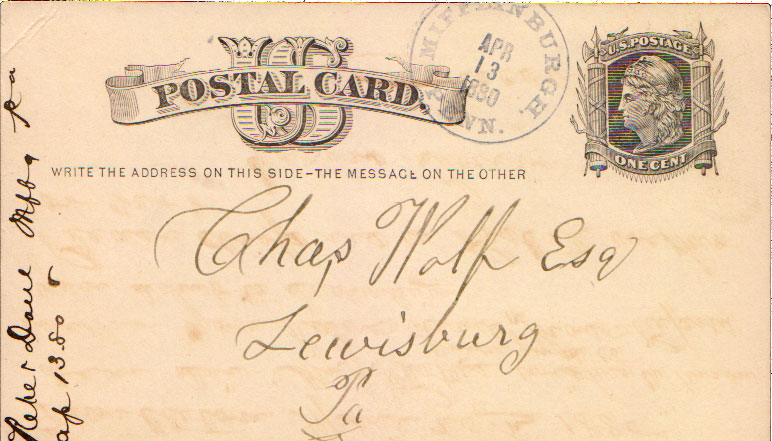 US
POSTAL CARD.
MIFFLINBURG. PENN.
APR
13
1880
U.S. POSTAGE
ONE CENT
WRITE THE ADDRESS ON THIS SIDE–THE MESSAGE ON THE OTHER
Chas Wolf Esq
Lewisburg
Pa
Mffbg Pa
ap 13.80